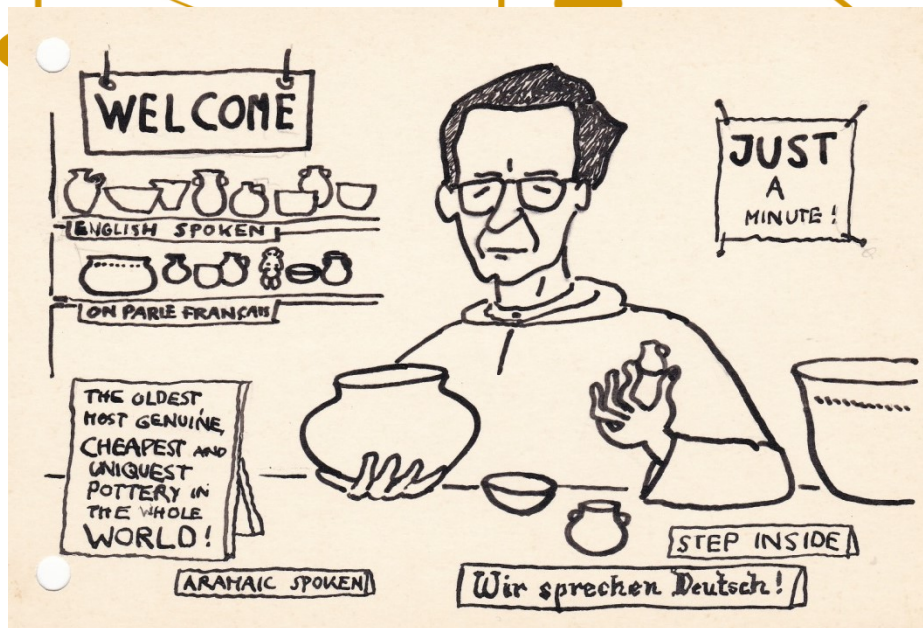 WELCOME
ENGLISH SPOKEN
ON PARLE FRANÇAIS
JUST
A
MINUTE!
THE OLDEST
MOST GENUINE,
CHEAPEST AND
UNIQUEST
POTTERY IN
THE WHOLE
WORLD!
ARAMAIC SPOKEN
STEP INSIDE
Wir sprechen Deutsch!